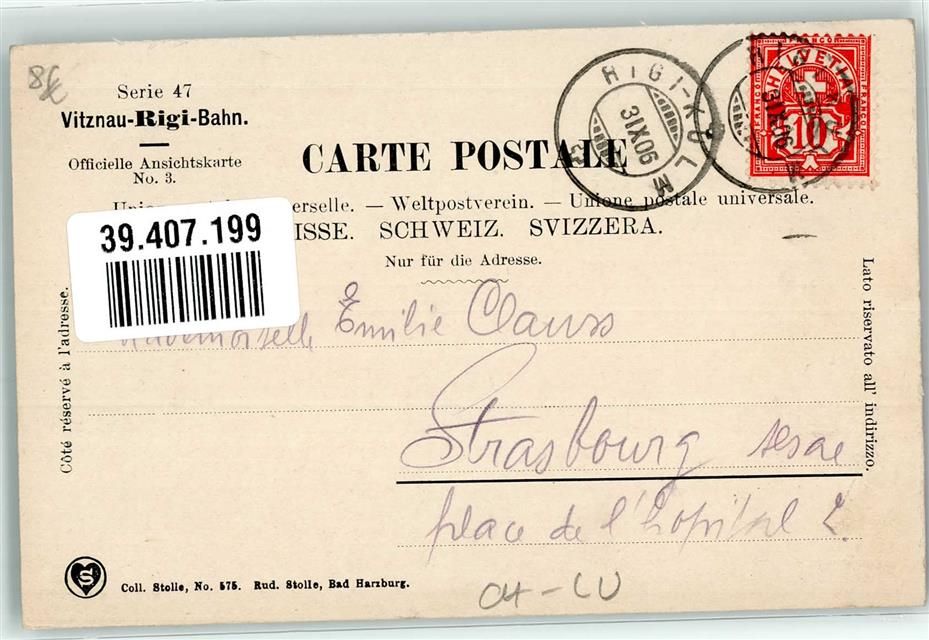 Serie 47
Vitznau-Rigi-Bahn.
Officielle Ansichtskarte
No. 3.
CARTE POSTALE
RIGI-KULM
31 X 06
FRANCO
HELVETIA
FRANCO
FRANCO
10
Weltpostverein. — Unione postale universale.
SCHWEIZ. SVIZZERA.
Nur für die Adresse.
39.407.199
Côté réservé à l'adresse.
Lato riservato all' indirizzo.
Mademoiselle Emilie Clauss
Strasbourg
place de l'hopital 2.
S
Coll. Stolle, No. 575. Rud. Stolle, Bad Harzburg.
CH-LU